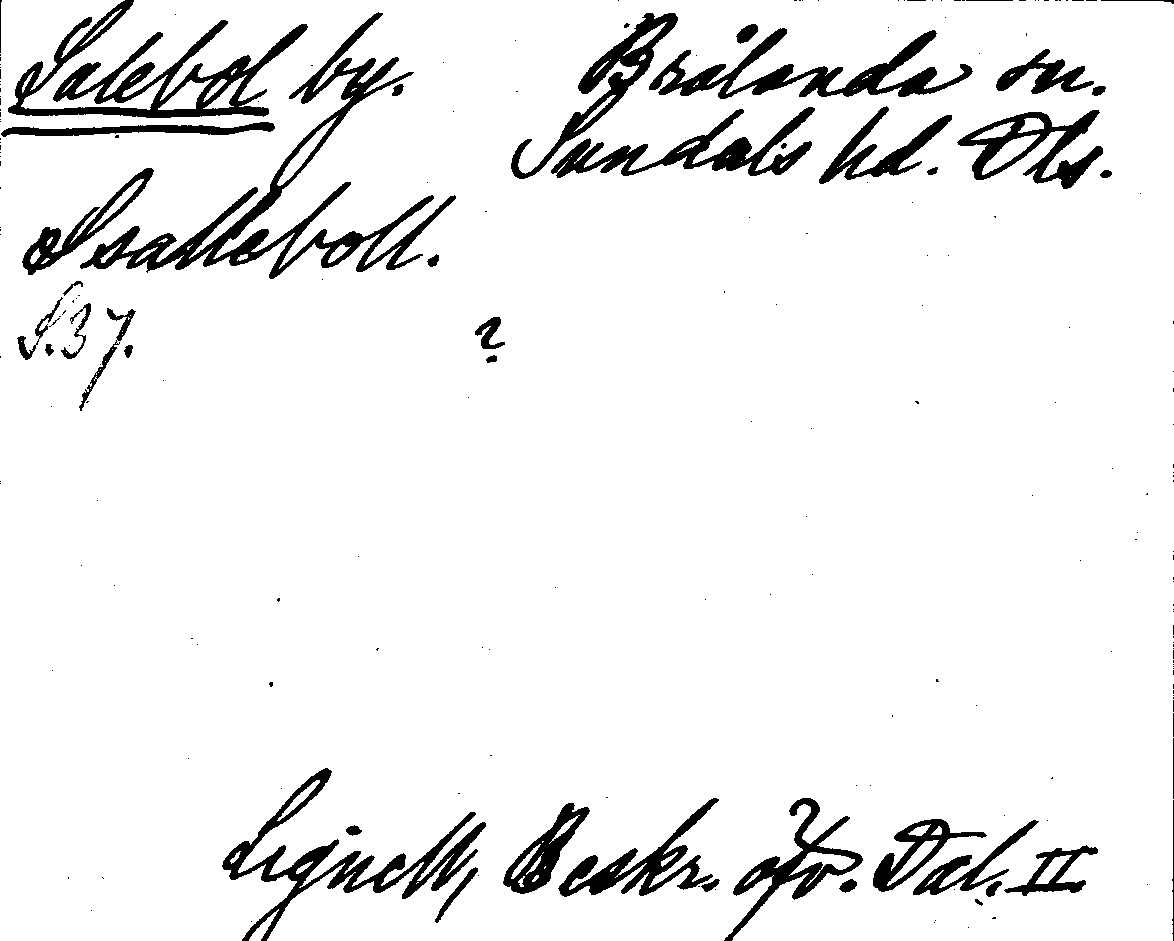 Salebol by. Brålanda sn.
Sundals hd. Dls.
Ssalleboll.
S. 37. ?
Lignell, Beskr. öfv. Dal. II.